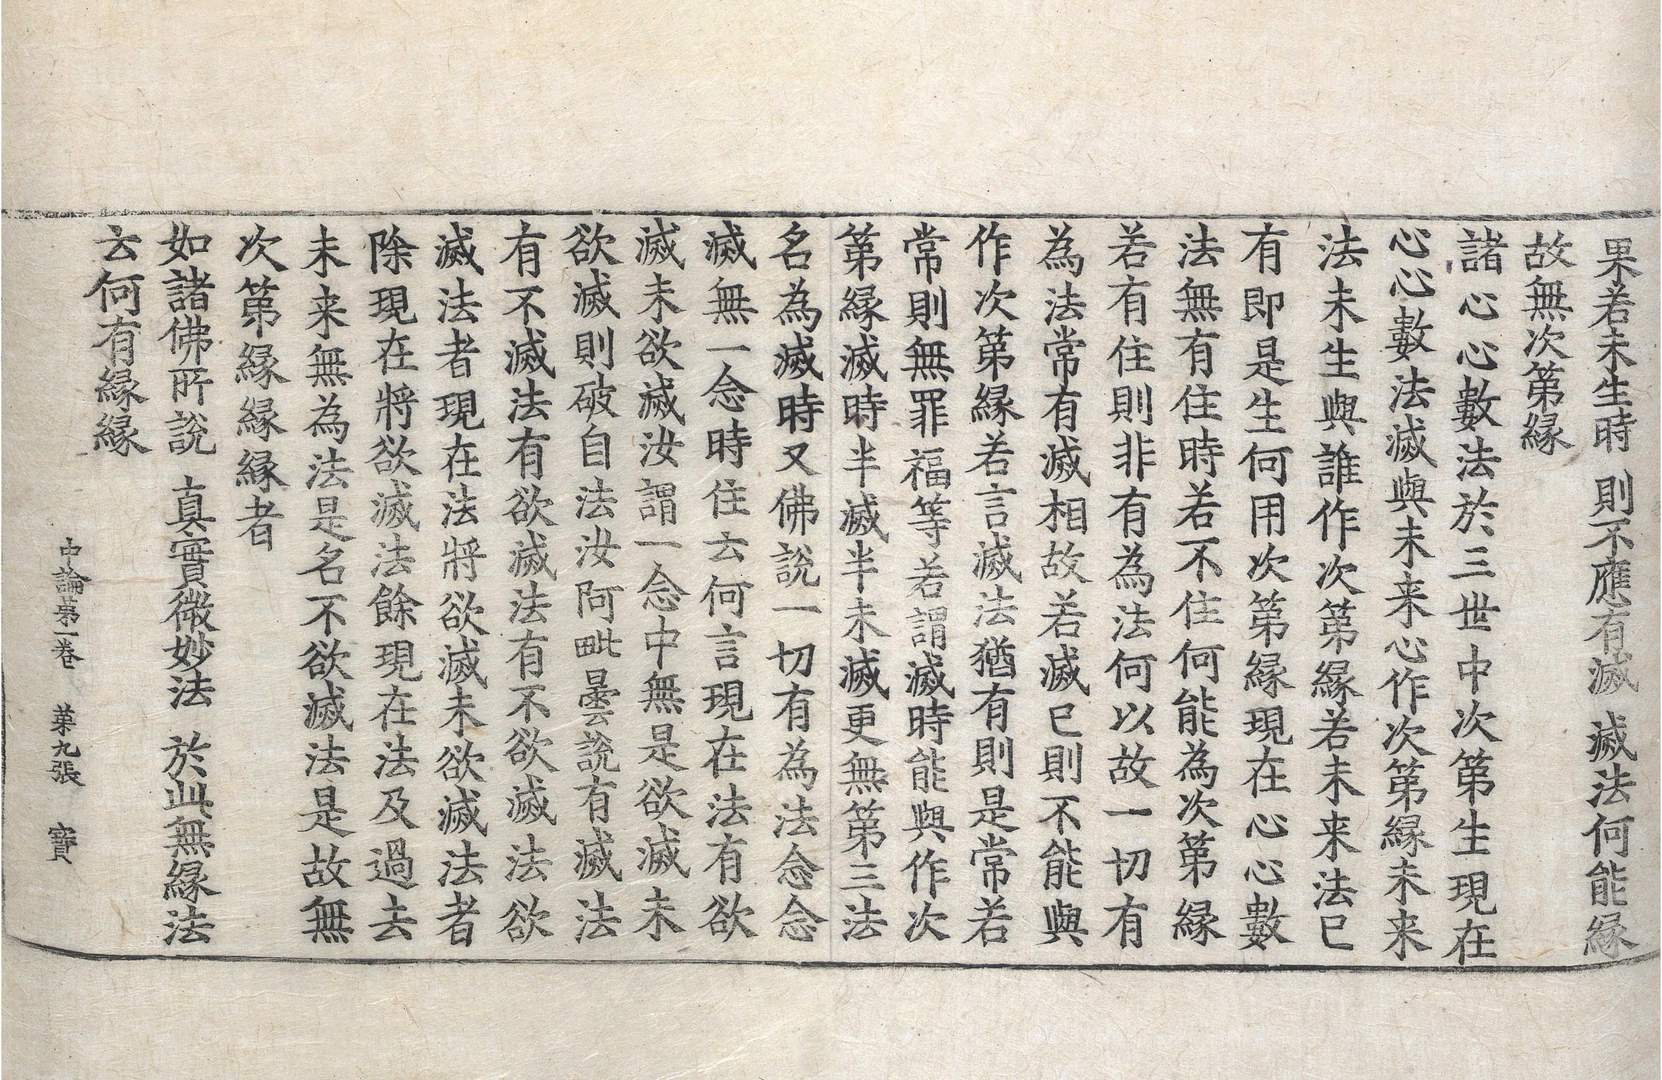 果若未生時 則不應有滅 滅法何能縁
故無次第縁
諸心心數法於三世中次第生現在
心心數法滅與未来心作次第縁未来
法未生與誰作次第縁若未来法已
有即是生何用次第縁現在心心數
法無有住時若不住何能為次第縁
若有住則非有為法何以故一切有
為法常有滅相故若滅已則不能與
作次第縁若言滅法猶有則是常若
常則無罪福等若謂滅時能與作次
第縁滅時半滅半未滅更無第三法
名為滅時又佛說一切有為法念念
滅無一念時住云何言現在法有欲
滅未欲滅汝謂一念中無是欲滅未
欲滅則破自法汝阿毗曇說有滅法
有不滅法有欲滅法有不欲滅法欲
滅法者現在法將欲滅未欲滅法者
除現在將欲滅法餘現在法及過去
未来無為法是名不欲滅法是故無
次第縁縁縁者
如諸佛所說 真實微妙法 於此無縁法
云何有縁縁
中論第一卷 苐九張 寶